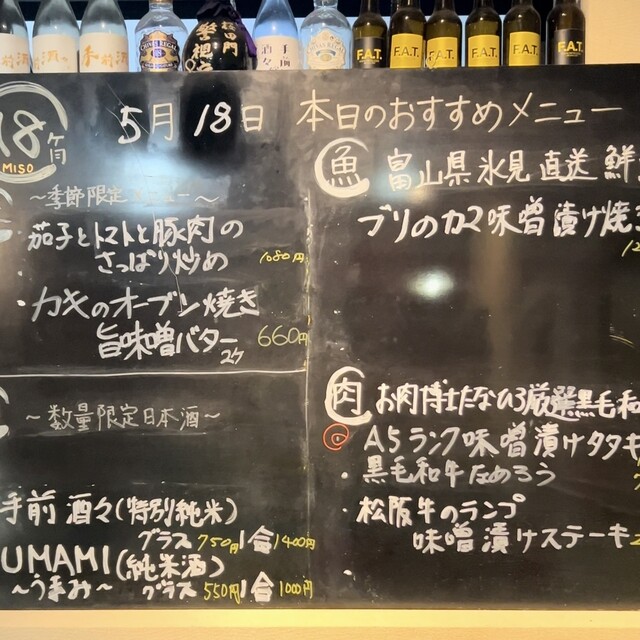 手前酒
F.A.T.
F.A.T.
F.A.T.
F.A.T.
F.A.T.
F.A.T.
18ヶ月
MISO
5月18日 本日のおすすめメニュー
～季節限定メニュー～
茄子とトマトと豚肉の
さっぱり炒め
1080円
・カキのオーブン焼き
旨味噌バター
2ヶ 660円
～数量限定日本酒～
手前酒々(特別純米)
グラス750円 1合1400円
UMAMI(純米酒)
～うまみ～ グラス550円 1合1000円
魚 富山県氷見直送 鮮
ブリのカマ味噌漬け焼き
肉 お肉博士たなひろ厳選黒毛和
A5ランク味噌漬けタタキ
・黒毛和牛ためろう
・松阪牛のランプ
味噌漬けステーキ